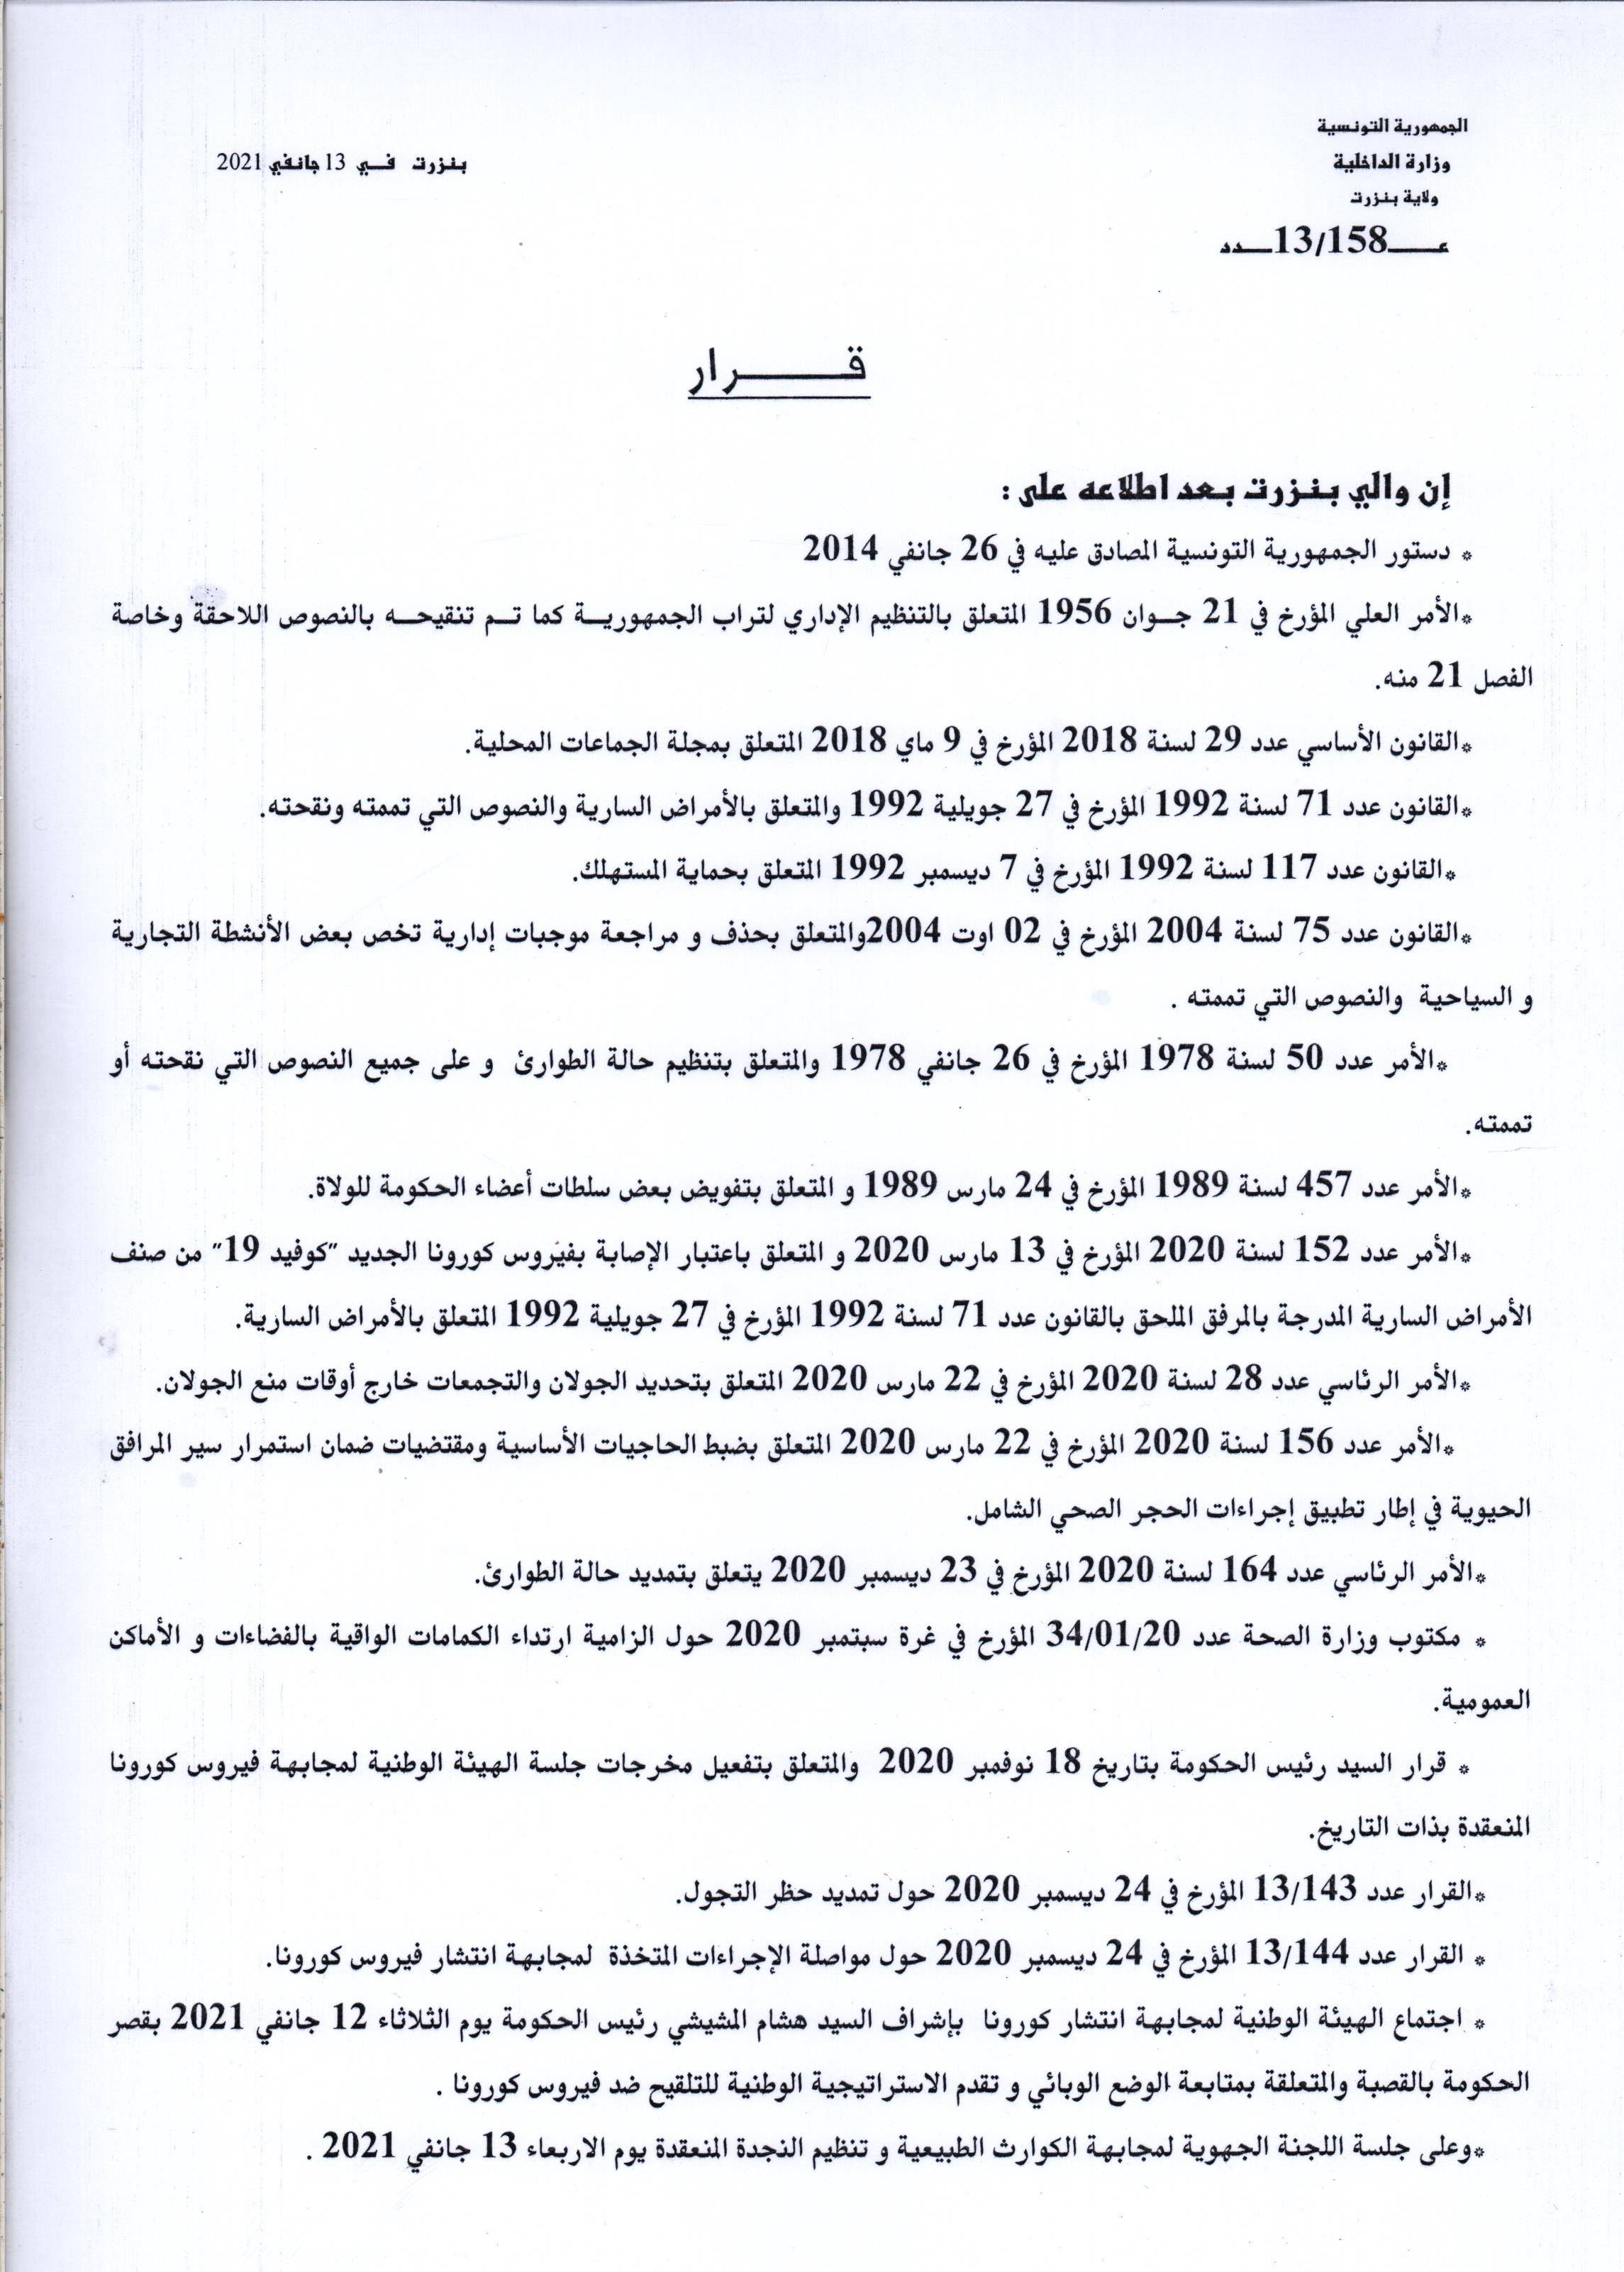 الجمهورية التونسية
وزارة الداخلية
بنزرت في 13 جانفي 2021
ولاية بنزرت
عـــ13/158ـــدد
قـــــرار
إن والي بنزرت بعد اطلاعه على :
* دستور الجمهورية التونسية المصادق عليه في 26 جانفي 2014
*الأمر العلي المؤرخ في 21 جـوان 1956 المتعلق بالتنظيم الإداري لتراب الجمهوريـة كما تـم تنقيحـه بالنصوص اللاحقة وخاصة
الفصل 21 منه.
*القانون الأساسي عدد 29 لسنة 2018 المؤرخ في 9 ماي 2018 المتعلق بمجلة الجماعات المحلية.
*القانون عدد 71 لسنة 1992 المؤرخ في 27 جويلية 1992 والمتعلق بالأمراض السارية والنصوص التي تممته ونقحته.
*القانون عدد 117 لسنة 1992 المؤرخ في 7 ديسمبر 1992 المتعلق بحماية المستهلك.
*القانون عدد 75 لسنة 2004 المؤرخ في 02 اوت 2004والمتعلق بحذف و مراجعة موجبات إدارية تخص بعض الأنشطة التجارية
و السياحية والنصوص التي تممته .
*الأمر عدد 50 لسنة 1978 المؤرخ في 26 جانفي 1978 والمتعلق بتنظيم حالة الطوارئ و على جميع النصوص التي نقحته أو
تممته.
*الأمر عدد 457 لسنة 1989 المؤرخ في 24 مارس 1989 و المتعلق بتفويض بعض سلطات أعضاء الحكومة للولاة.
*الأمر عدد 152 لسنة 2020 المؤرخ في 13 مارس 2020 و المتعلق باعتبار الإصابة بفيروس كورونا الجديد "كوفيد 19" من صنف
الأمراض السارية المدرجة بالمرفق الملحق بالقانون عدد 71 لسنة 1992 المؤرخ في 27 جويلية 1992 المتعلق بالأمراض السارية.
*الأمر الرئاسي عدد 28 لسنة 2020 المؤرخ في 22 مارس 2020 المتعلق بتحديد الجولان والتجمعات خارج أوقات منع الجولان.
*الأمر عدد 156 لسنة 2020 المؤرخ في 22 مارس 2020 المتعلق بضبط الحاجيات الأساسية ومقتضيات ضمان استمرار سير المرافق
الحيوية في إطار تطبيق إجراءات الحجر الصحي الشامل.
*الأمر الرئاسي عدد 164 لسنة 2020 المؤرخ في 23 ديسمبر 2020 يتعلق بتمديد حالة الطوارئ.
* مكتوب وزارة الصحة عدد 34/01/20 المؤرخ في غرة سبتمبر 2020 حول الزامية ارتداء الكمامات الواقية بالفضاءات و الأماكن
العمومية.
* قرار السيد رئيس الحكومة بتاريخ 18 نوفمبر 2020 والمتعلق بتفعيل مخرجات جلسة الهيئة الوطنية لمجابهة فيروس كورونا
المنعقدة بذات التاريخ.
*القرار عدد 13/143 المؤرخ في 24 ديسمبر 2020 حول تمديد حظر التجول.
* القرار عدد 13/144 المؤرخ في 24 ديسمبر 2020 حول مواصلة الإجراءات المتخذة لمجابهة انتشار فيروس كورونا.
* اجتماع الهيئة الوطنية لمجابهة انتشار كورونا بإشراف السيد هشام المشيشي رئيس الحكومة يوم الثلاثاء 12 جانفي 2021 بقصر
الحكومة بالقصبة والمتعلقة بمتابعة الوضع الوبائي و تقدم الاستراتيجية الوطنية للتلقيح ضد فيروس كورونا .
*وعلى جلسة اللجنة الجهوية لمجابهة الكوارث الطبيعية و تنظيم النجدة المنعقدة يوم الاربعاء 13 جانفي 2021 .